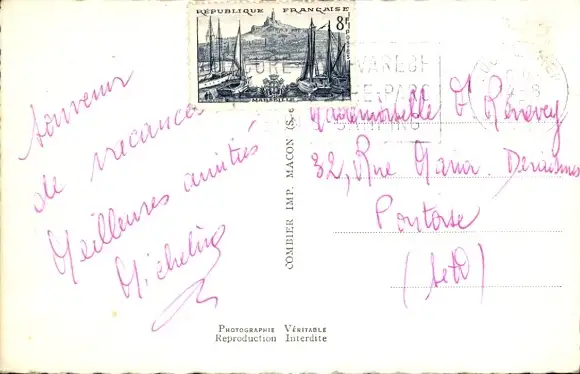 RÉPUBLIQUE FRANÇAISE
8F
MARSEILLE
Souvenir
de vacances
Meilleures amitiés
Micheline
COMBIER IMP. MACON
Mademoiselle
32, Rue Maria Deraismes
Pontoise
(SetO)
PHOTOGRAPHIE VÉRITABLE
Reproduction Interdite